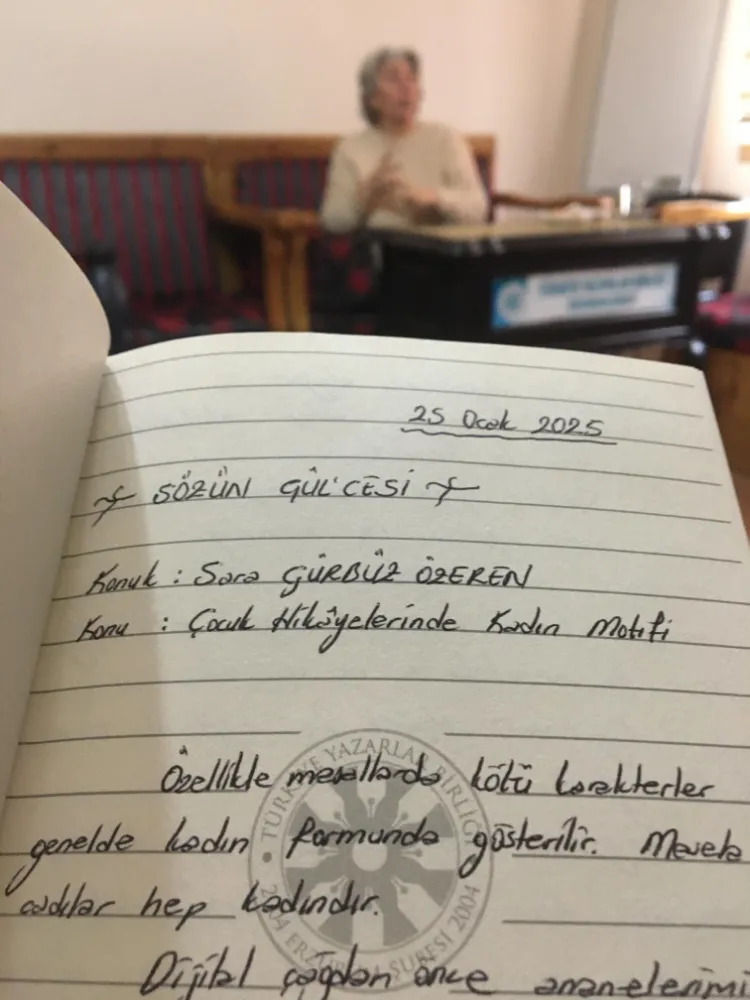 25 Ocak 2025
SÖZÜN GÜL'CESİ
Konuk : Sara GÜRBÜZ ÖZEREN
Konu : Çocuk Hikâyelerinde Kadın Motifi
Özellikle masallarda kötü karakterler
genelde kadın formunda gösterilir. Mesela
cadılar hep kadındır.
Dijital çağdan önce ananelerimi
TÜRKİYE YAZARLAR BİRLİĞİ
2004 ERZURUM ŞUBESİ 2004